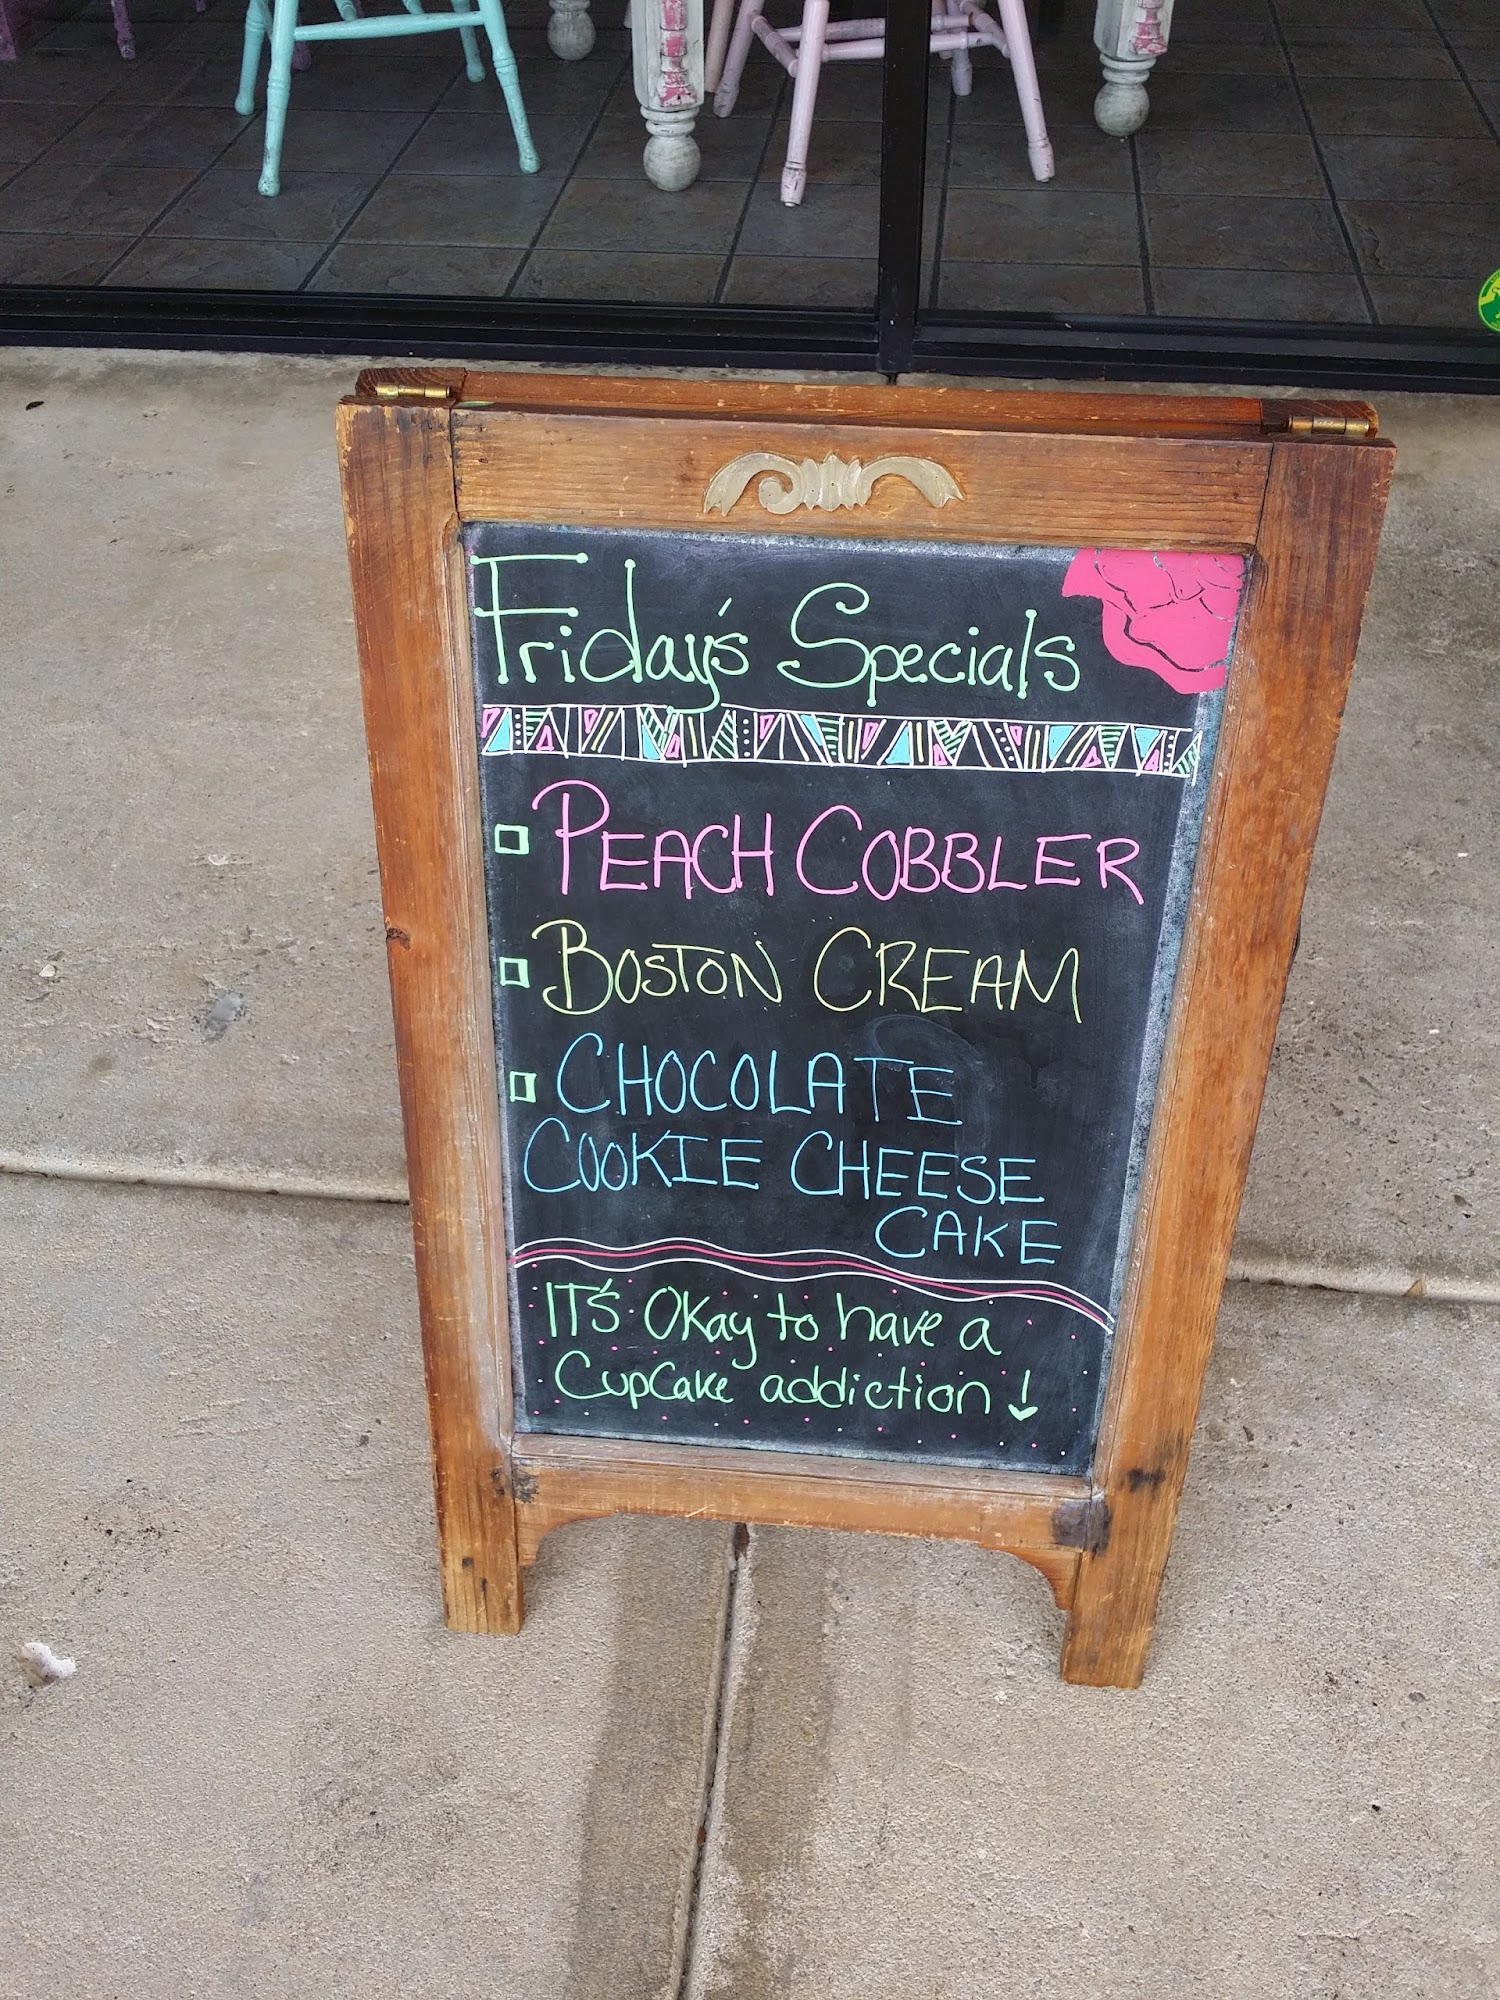 Friday's Specials
PEACH COBBLER
BOSTON CREAM
CHOCOLATE
COOKIE CHEESE
CAKE
IT'S OKay to have a
CupCake addiction!